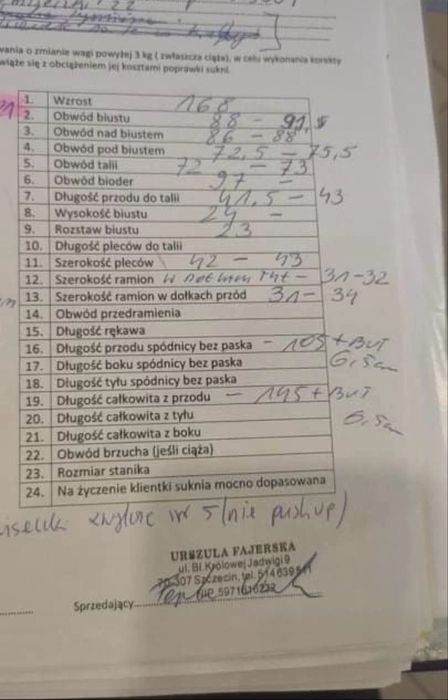 wania o zmianie wagi powyżej 3 kg ( zwłaszcza ciąża), w celu wykonania korekty
wiąże się z obciążeniem jej kosztami poprawki sukni.
1. Wzrost 168
2. Obwód biustu 88 - 91,5
3. Obwód nad biustem 86 - 88
4. Obwód pod biustem 72,5 - 75,5
5. Obwód talii 72 - 73
6. Obwód bioder 97 -
7. Długość przodu do talii 41,5 - 43
8. Wysokość biustu 24 -
9. Rozstaw biustu 23
10. Długość pleców do talii
11. Szerokość pleców 42 - 43
12. Szerokość ramion - 31-32
13. Szerokość ramion w dołkach przód 31 - 34
14. Obwód przedramienia
15. Długość rękawa
16. Długość przodu spódnicy bez paska - 105 + BUT
17. Długość boku spódnicy bez paska 6,5cm
18. Długość tyłu spódnicy bez paska
19. Długość całkowita z przodu - 145 + BUT
20. Długość całkowita z tyłu 6,5cm
21. Długość całkowita z boku
22. Obwód brzucha (jeśli ciąża)
23. Rozmiar stanika
24. Na życzenie klientki suknia mocno dopasowana
(nie push up)
URSZULA FAJERSKA
ul. Bł. Królowej Jadwigi 9
70-307 Szczecin, tel. 514 639
Sprzedający